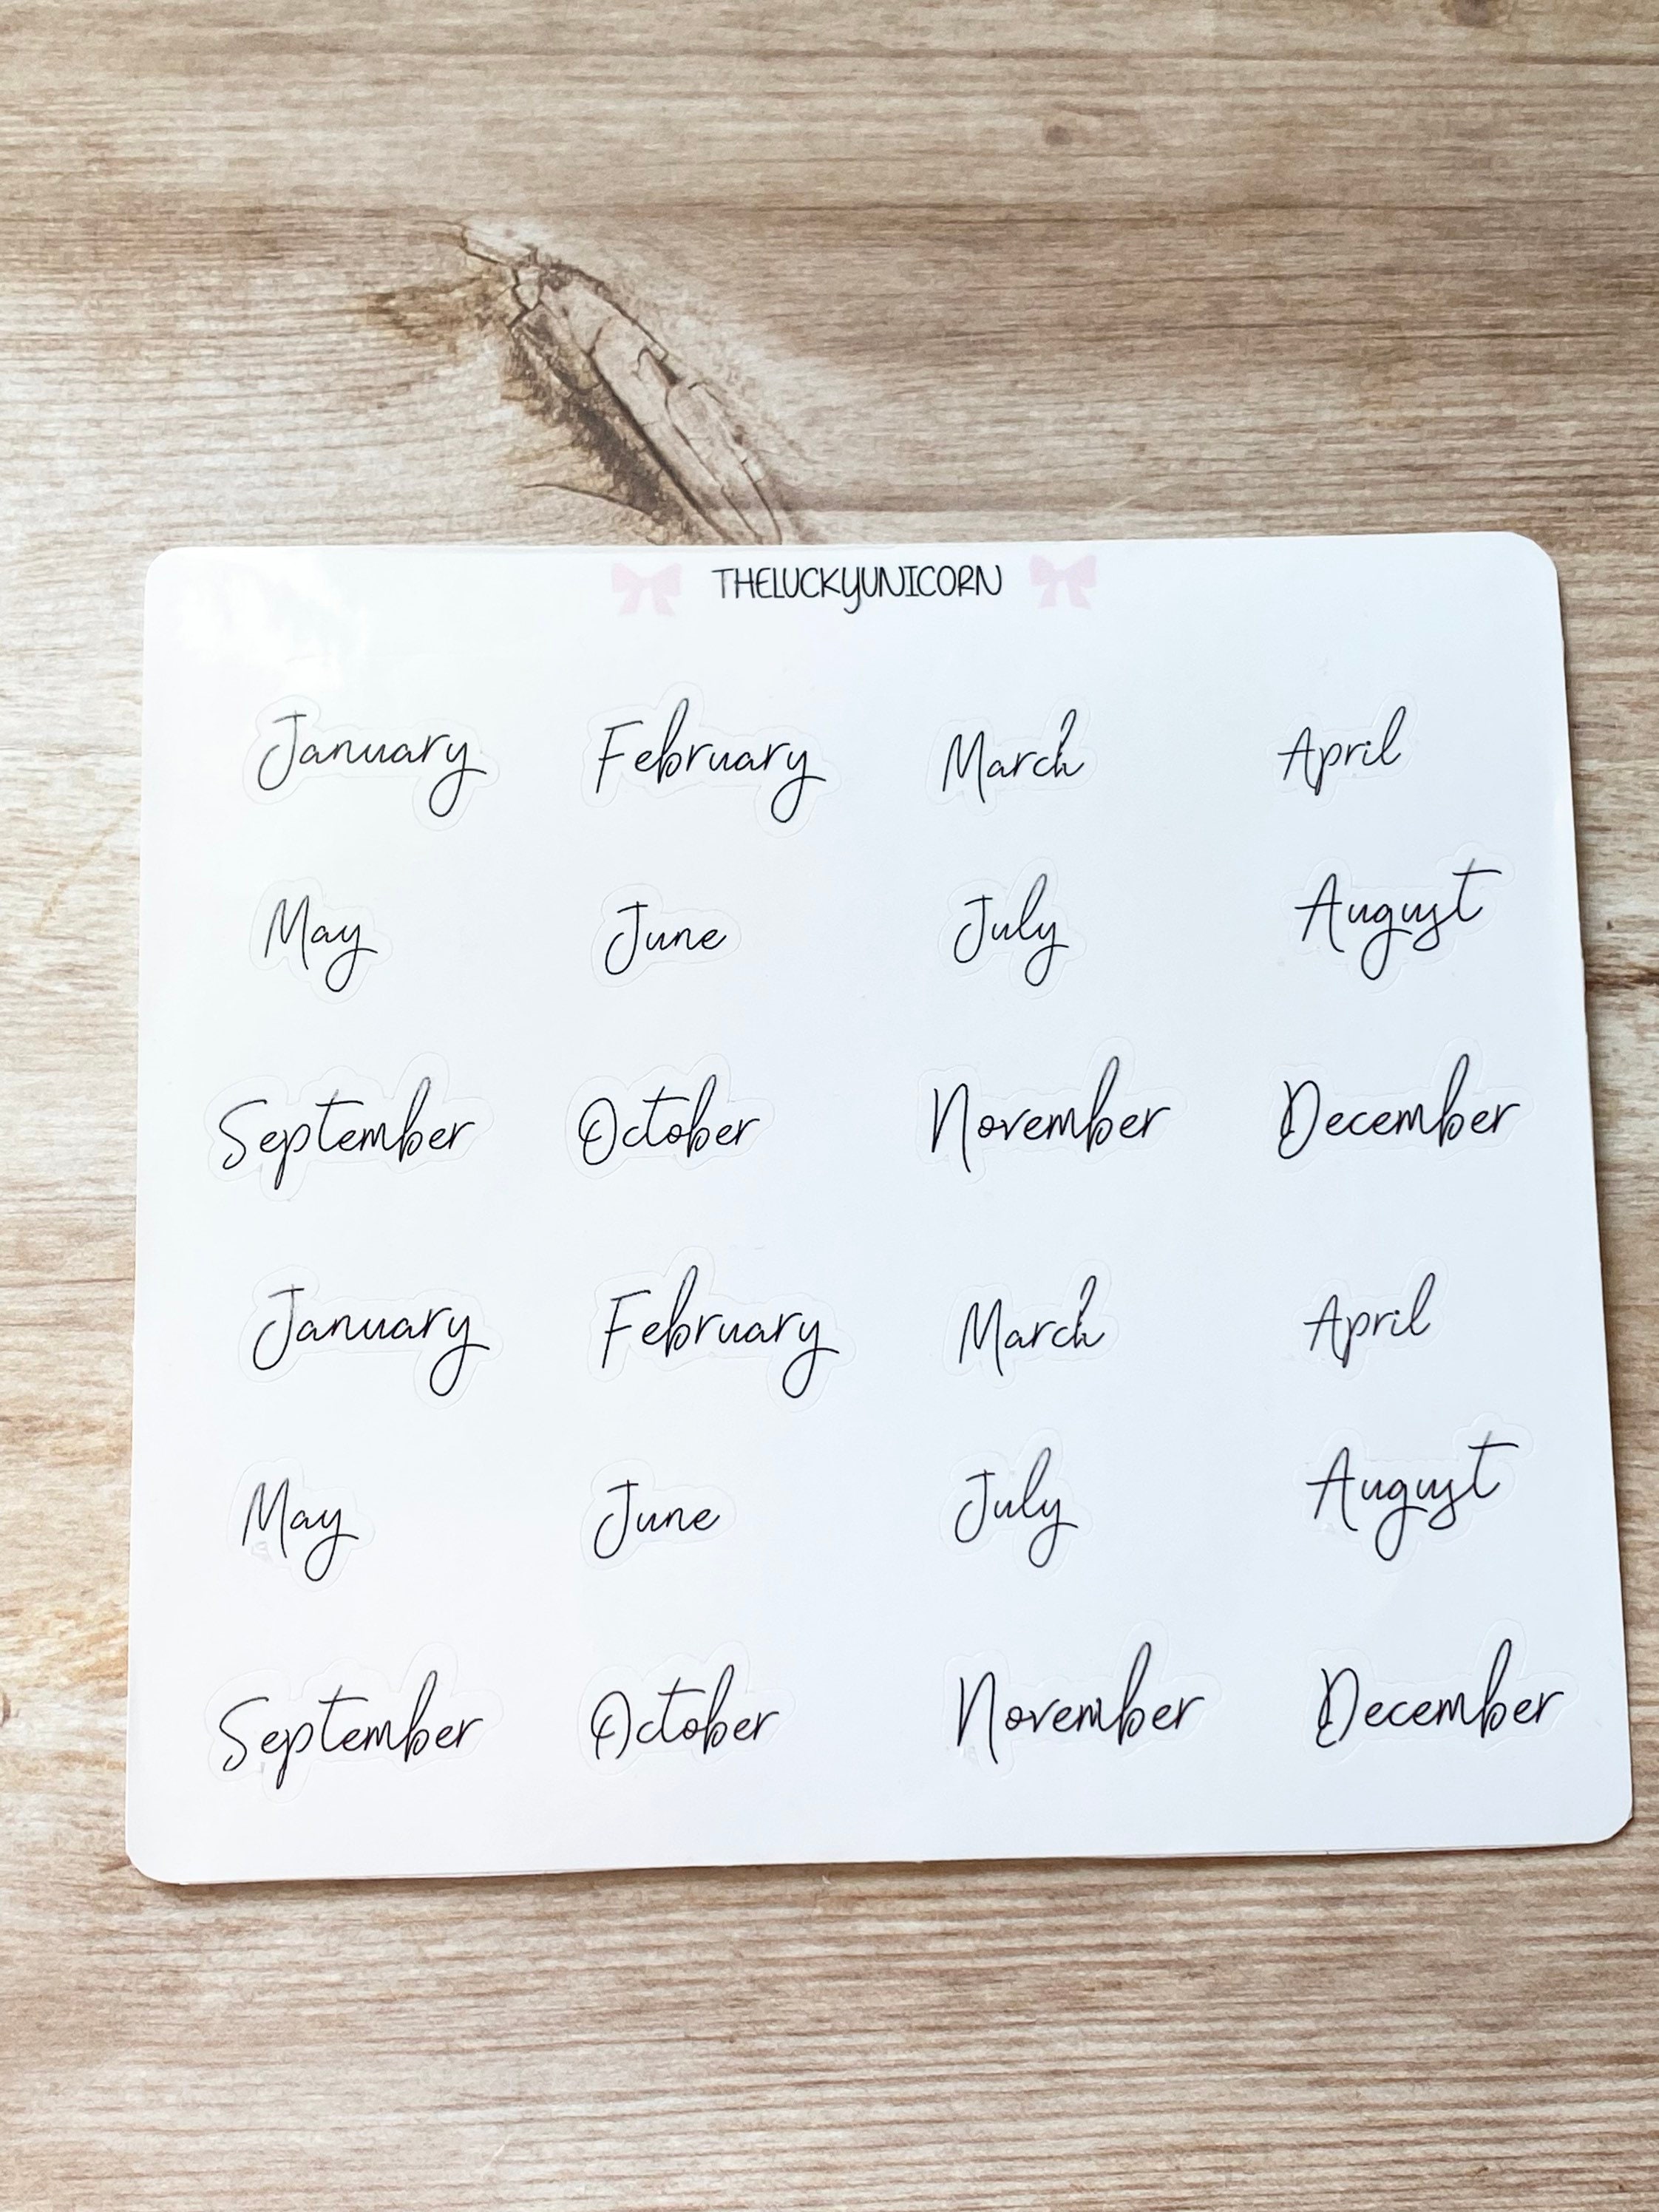 THELUCKYUNICORN
January February March April
May June July August
September October November December
January February March April
May June July August
September October November December